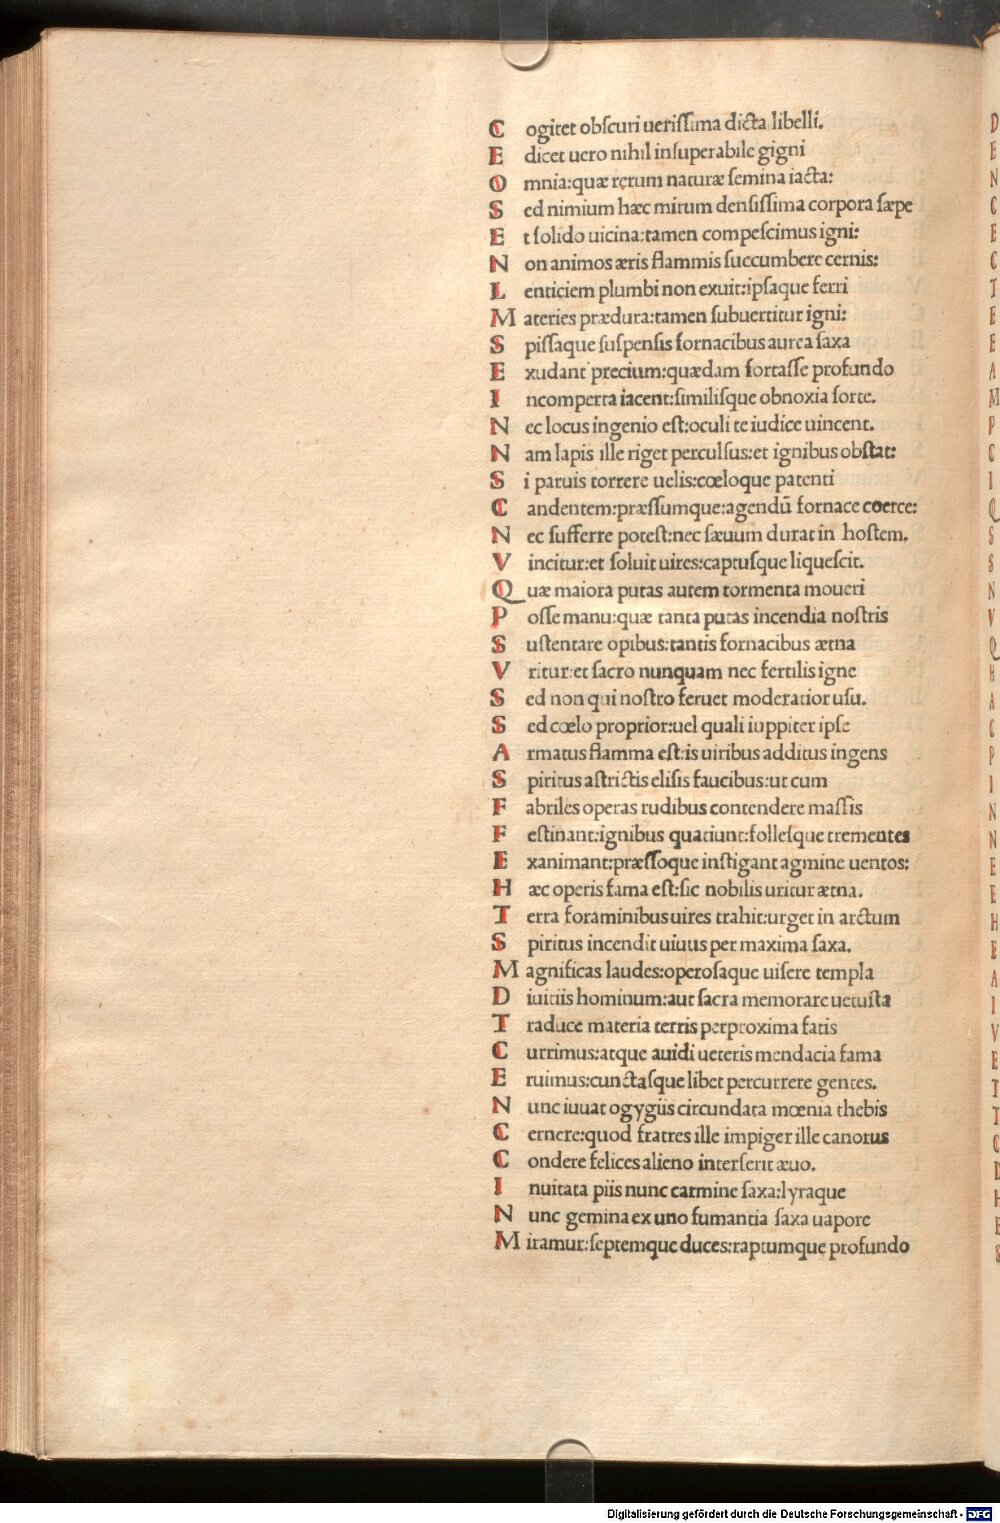 Cogitet obscuri uerissima dicta libelli.
Edicet uero nihil insuperabile gigni
Omnia:quæ rerum naturæ semina iacta:
Sed nimium hæc mirum densissima corpora sæpe
Et solido uicina:tamen compescimus igni:
Non animos æris flammis succumbere cernis:
Lenticiem plumbi non exuit:ipsaque ferri
Materies prædura:tamen subuertitur igni:
Spissaque suspensis fornacibus aurea saxa
Exudant precium:quædam fortasse profundo
Incomperta iacent:similisque obnoxia sorte.
Nec locus ingenio est:oculi te iudice uincent.
Nam lapis ille riget perculsus:et ignibus obstat:
Si paruis torrere uelis:cœloque patenti
Candentem:præssumque:agendū fornace coerce:
Nec sufferre potest:nec sæuum durat in hostem.
Vincitur:et soluit uires:captusque liquescit.
Quæ maiora putas autem tormenta moueri
Posse manu:quæ tanta putas incendia nostris
Sustentare opibus:tantis fornacibus ætna
Vritur:et sacro nunquam nec fertilis igne
Sed non qui nostro feruet moderatior usu.
Sed cœlo proprior:uel quali iuppiter ipse
Armatus flamma est:is uiribus additus ingens
Spiritus astrictis elisis faucibus:ut cum
Fabriles operas rudibus contendere massis
Festinant:ignibus quatiunt:follesque trementes
Exanimant:præssoque instigant agmine uentos:
Hæc operis fama est:sic nobilis uritur ætna.
Terra foraminibus uires trahit:urget in arctum
Spiritus incendit uiuus per maxima saxa.
Magnificas laudes:operosaque uisere templa
Diuitiis hominum:aut sacra memorare uetusta
Traduce materia terris perproxima fatis
Currimus:atque auidi ueteris mendacia fama
Eruimus:cunctasque libet percurrere gentes.
Nunc iuuat ogygiis circundata mœnia thebis
Cernere:quod fratres ille impiger ille canorus
Condere felices alieno interserit æuo.
Inuitata piis nunc carmine saxa:lyraque
Nunc gemina ex uno fumantia saxa uapore
Miramur:septemque duces:raptumque profundo
D
E
N
C
E
C
T
E
E
A
M
P
C
I
Q
S
S
N
V
Q
H
A
C
P
I
N
N
E
E
H
E
A
I
V
E
T
T
C
D
H
E
S
Digitalisierung gefördert durch die Deutsche Forschungsgemeinschaft - DFG